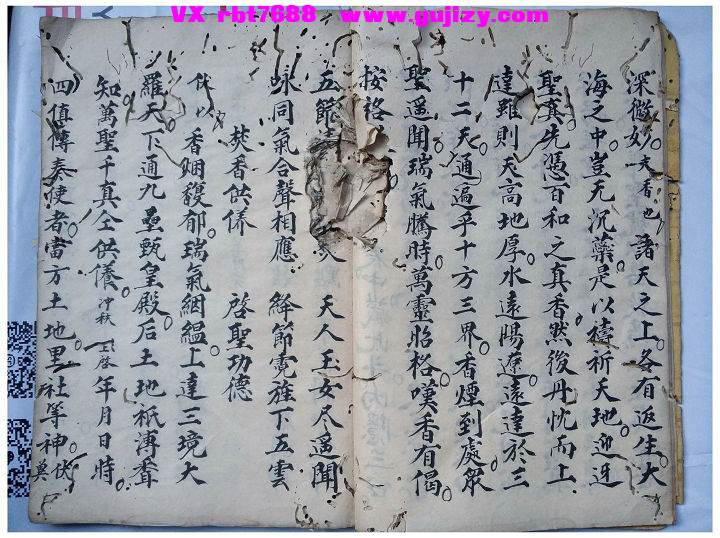 VX rbt7688 www.gujizy.com
深微妙夫香也諸天之上各有返生大
海之中豈无沉藥是以禱祈天地迎迓
聖真先憑百和之真香然後丹忱而上
達雖則天高地厚水遠陽遼遠達於三
十二天通遍乎十方三界香煙到處眾
聖遥聞瑞氣騰時萬靈昭格嘆香有偈
按格
五節 天人玉女尽遥聞
咏同氣合聲相應 絳節霓旌下五雲
焚香供养 啓聖功德
伏以香烟馥郁瑞氣絪緼上達三境大
羅天下通九壘甄皇殿后土地祇溥聋
知萬聖千真仝供養冲秋上啓年月日時
四值傳奏使者當方土地里社等神伏